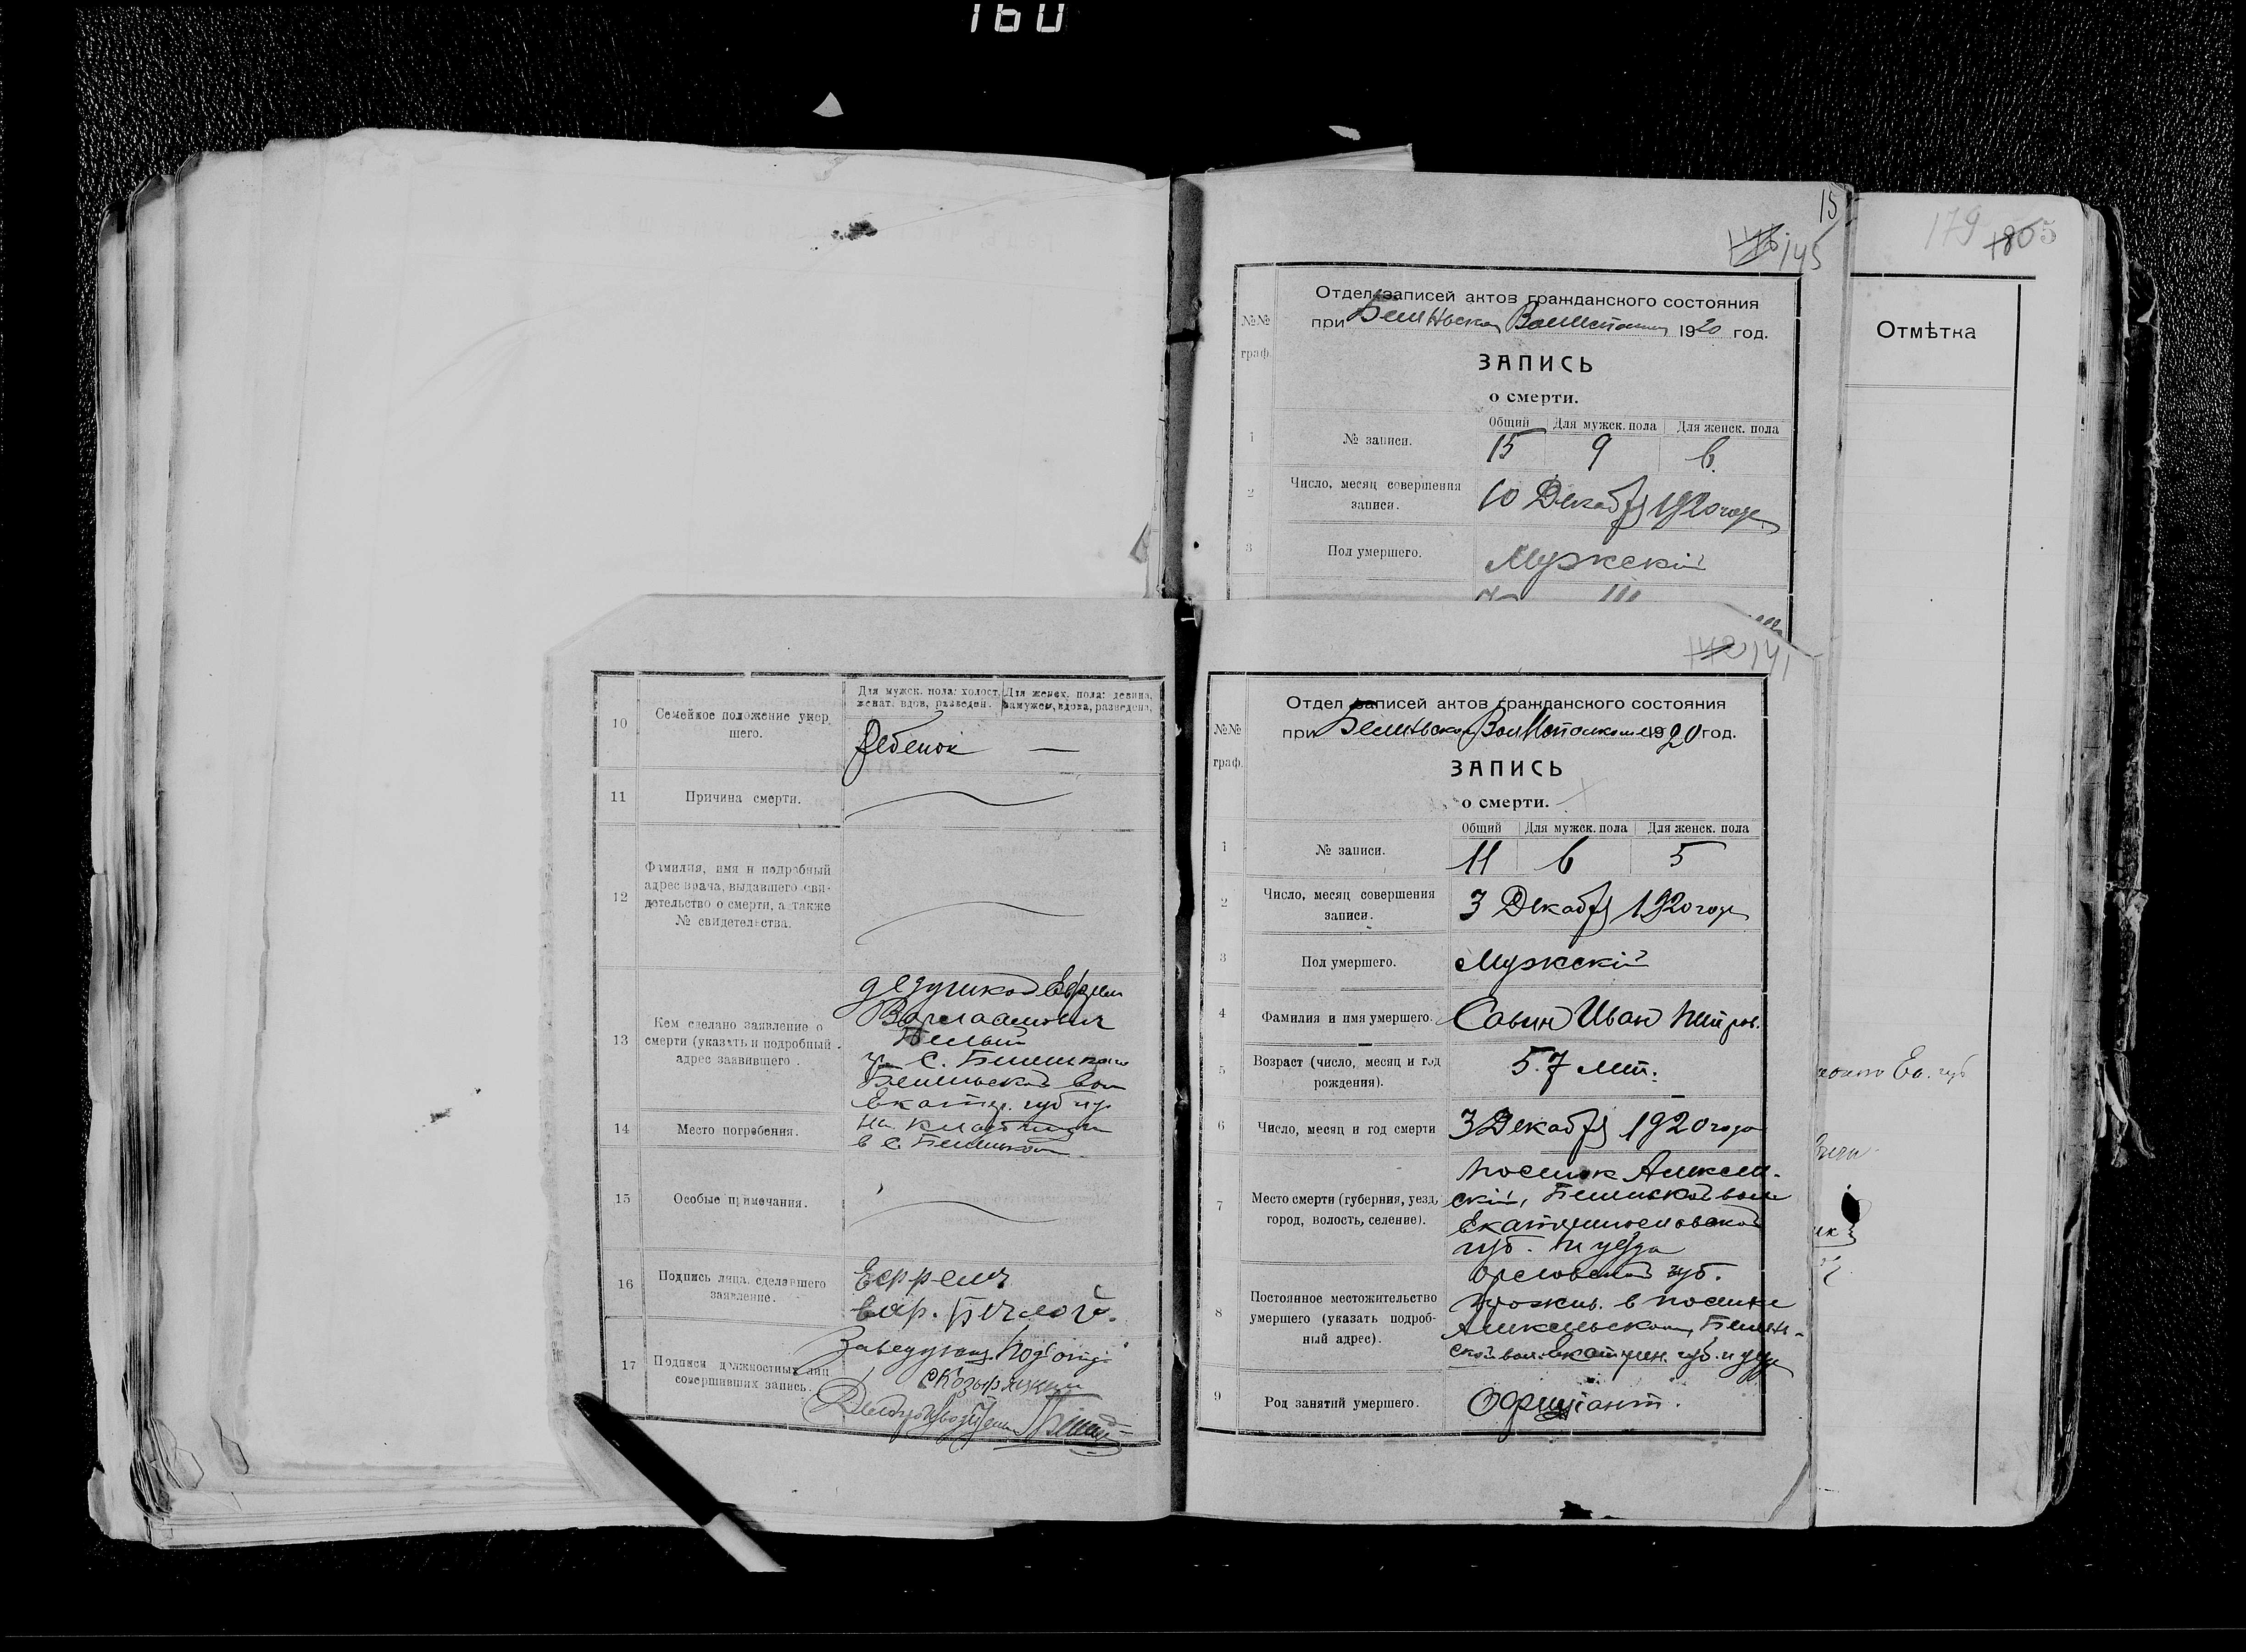 160
15
145
Отдел записей актов гражданского состояния
при 1920 год.
№№ граф.
ЗАПИСЬ
о смерти.
Общий Для мужск. пола Для женск. пола
1 № записи. 15 9 6
2 Число, месяц совершения
записи. 10 Декабря 1920 года
3 Пол умершего. Мужскій
179 1805
Отмѣтка
Для мужск. пола: холост, женат, вдов, разведен. Для женск. пола: девица, замужем, вдова, разведена,
10 Семейное положение умер
шего. Ребенок —
11 Причина смерти.
12 Фамилия, имя и подробный
адрес врача, выдавшего сви-
детельство о смерти, а также
№ свидетельства.
13 Кем сделано заявление о
смерти (указать и подробный
адрес заявившего.
дедушкой Ефрем
Варлаамович
Белый
с.
вол
Екатер. губ. и у.
14 Место погребения. на кладбище
в с.
15 Особые примечания.
16 Подпись лица, сделавшего
заявление. Ефрем
Вар. Белой.
17 Подписи должностных лиц
совершивших запись.
Заведующ. Подотд.
Делопроизводитель
142 141
Отдел записей актов гражданского состояния
при 1920 год.
№№ граф.
ЗАПИСЬ
о смерти.
Общий Для мужск. пола Для женск. пола
1 № записи. 11 6 5
2 Число, месяц совершения
записи. 3 Декабря 1920 года
3 Пол умершего. Мужскій
4 Фамилия и имя умершего. Савин Иван Петров.
5 Возраст (число, месяц и год
рождения). 57 лет.
6 Число, месяц и год смерти 3 Декабря 1920 года
7 Место смерти (губерния, уезд,
город, волость, селение).
поселок Алексеев-
скій, вол
Екатеринославской
губ. и уезда
8 Постоянное местожительство
умершего (указать подроб-
ный адрес).
Орловской губ.
прожив. в поселке
ской вол. Екатерин. губ. и уезда
9 Род занятий умершего. Официант.